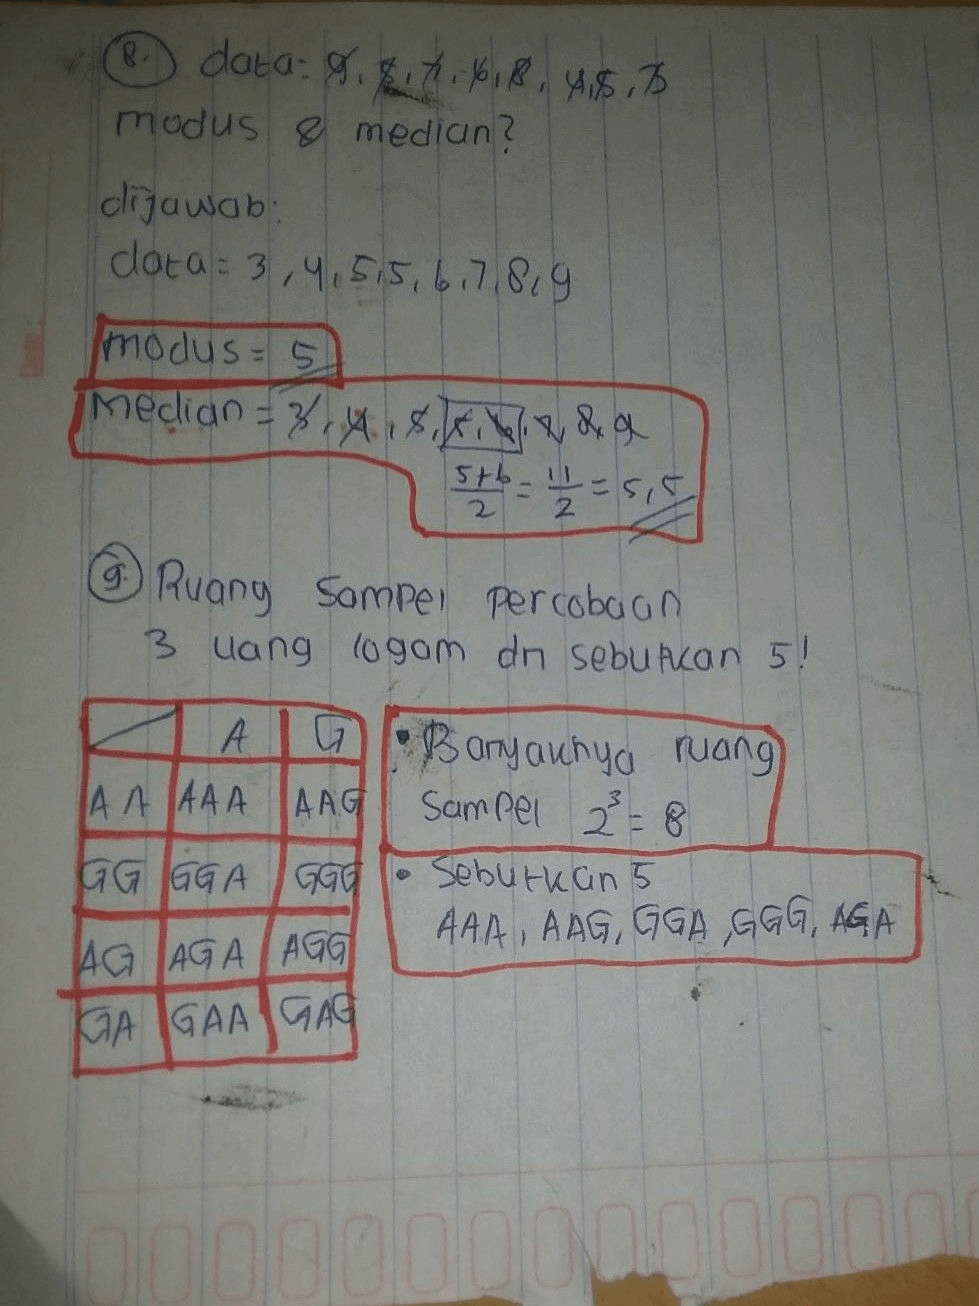 8. data: 9, 5, 7, 6, 8, 4, 5, 3
modus & median?
dijawab:
data = 3, 4, 5, 5, 6, 7, 8, 9
modus = 5
Median = 3, 4, 5, 5, 6, 7, 8, 9
5+6/2 = 11/2 = 5,5
9. Ruang Sampel percobaan
3 uang logam dn sebutkan 5!
A G
AA AAA AAG
GG GGA GGG
AG AGA AGG
GA GAA GAG
• Banyaknya ruang
Sampel 2³ = 8
• Sebutkan 5
AAA, AAG, GGA, GGG, AGA